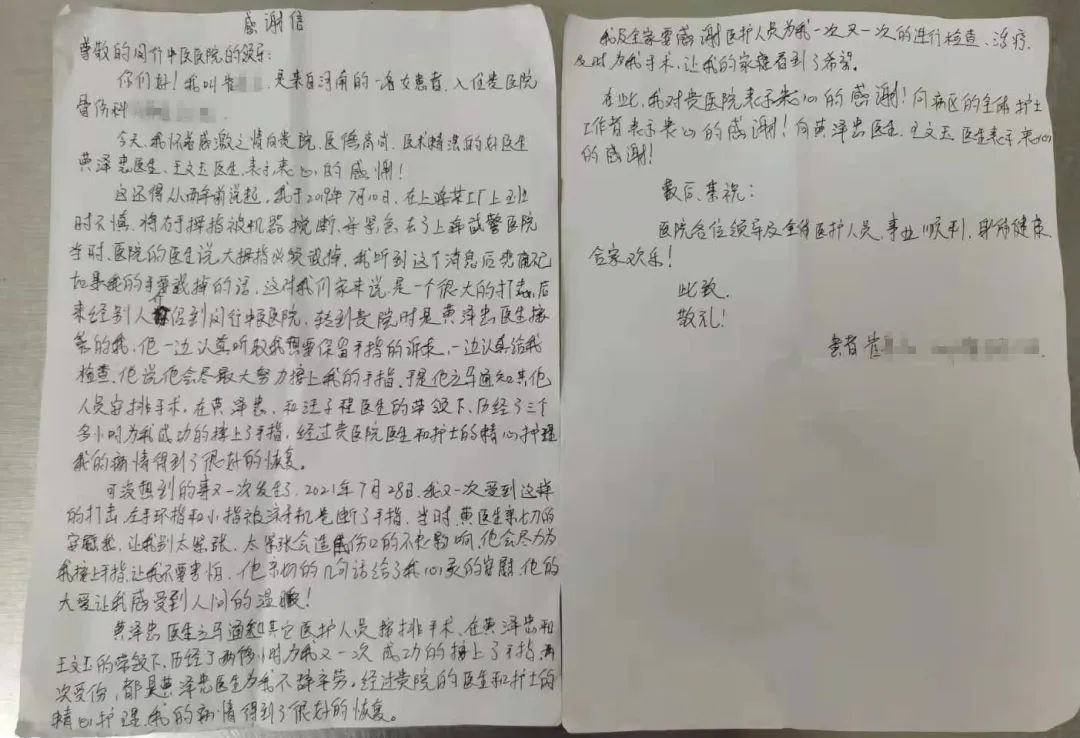 感谢信
尊敬的闵行中医医院的领导:
你们好!我叫肖 是来自河南的一名女患者,入住贵医院
骨伤科
今天,我怀着感激之情向贵院,医德高尚,医术精湛的好医生
黄泽忠医生,王文玉医生,表示衷心的感谢!
这还得从两年前说起,我于2019年7月10日,在上海某工厂上班
时不慎,将右手拇指被机器搅断,并紧急去了上海武警医院
当时,医院的医生说,大拇指必须截掉,我听到这个消息后悲痛不已
如果我的手要截掉的话,这对我们家来说,是一个很大的打击,后
来经别人介绍到闵行中医医院,转到贵院时是黄泽忠医生接
的我,他一边认真听取我想要保留手指的诉求,一边认真给我
检查,他说他会尽最大努力接上我的手指,于是他立马通知其他
人员安排手术,在黄泽忠,和汪子程医生的带领下,历经了三个
多小时为我成功的接上了手指,经过贵医院医生和护士的精心护理
我的病情得到了很好的恢复。
可没想到的事又一次发生了,2021年7月28日,我又一次受到这样
的打击,左手环指和小指被 机卷断了手指,当时,黄医生亲切的
安慰我,让我别太紧张,太紧张会造成伤口的不 影响,他会尽力为
我接上手指,让我不要害怕,他亲切的几句话给了我心灵的安慰,他的
大爱让我感受到人间的温暖!
黄泽忠医生立马通知其它医护人员安排手术,在黄泽忠和
王文玉的带领下,历经了两 小时为我又一次成功的接上了手指,两
次受伤,都是黄泽忠医生为我不辞辛劳,经过贵院的医生和护士的
精心护理,我的病情得到了很好的恢复。
我及全家要感谢医护人员为我一次又一次的进行检查、治疗,
及时为我手术,让我的家庭看到了希望。
在此,我对贵医院表示衷心的感谢!向病区的全体护士
工作者表示衷心的感谢!向黄泽忠医生,王文玉医生表示衷心
的感谢!
最后,亲祝:
医院各位领导及全体医护人员,事业顺利,身体健康,
合家欢乐!
此致
敬礼!
患者肖